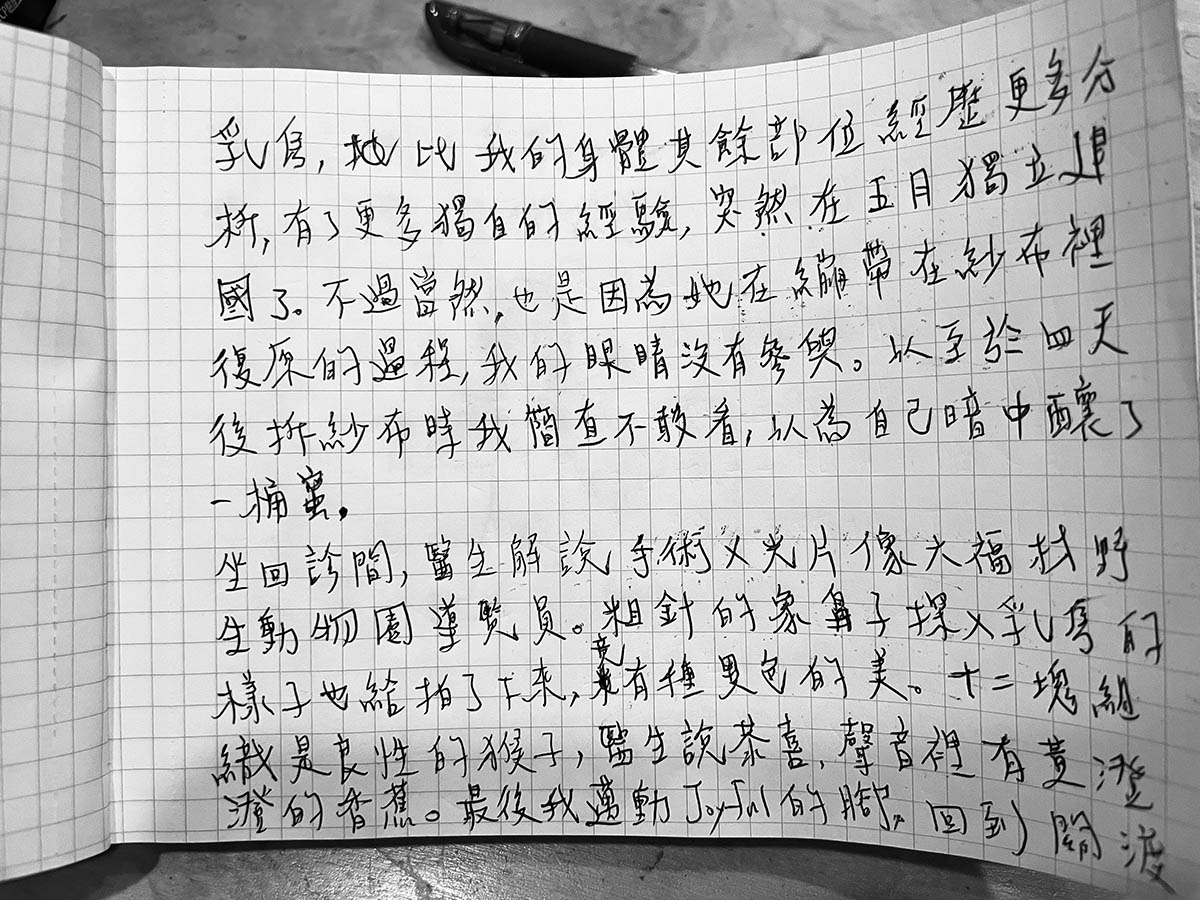 乳房，她比我的身體其餘部位經歷更多分
析，有了更多獨自的經驗，突然在五月獨立建
國了。不過當然，也是因為她在繃帶在紗布裡
復原的過程，我的眼睛沒有參與。以至於四天
後拆紗布時我簡直不敢看，以為自己暗中釀了
一桶蜜。
坐回診間，醫生解說手術X光片像六福村野
生動物園導覽員。粗針的象鼻子探入乳房的
樣子也給拍了下來，竟有種異色的美。十二塊組
織是良性的猴子，醫生說恭喜，聲音裡有黃澄
澄的香蕉。最後我邁動Joyful的腳，回到關渡